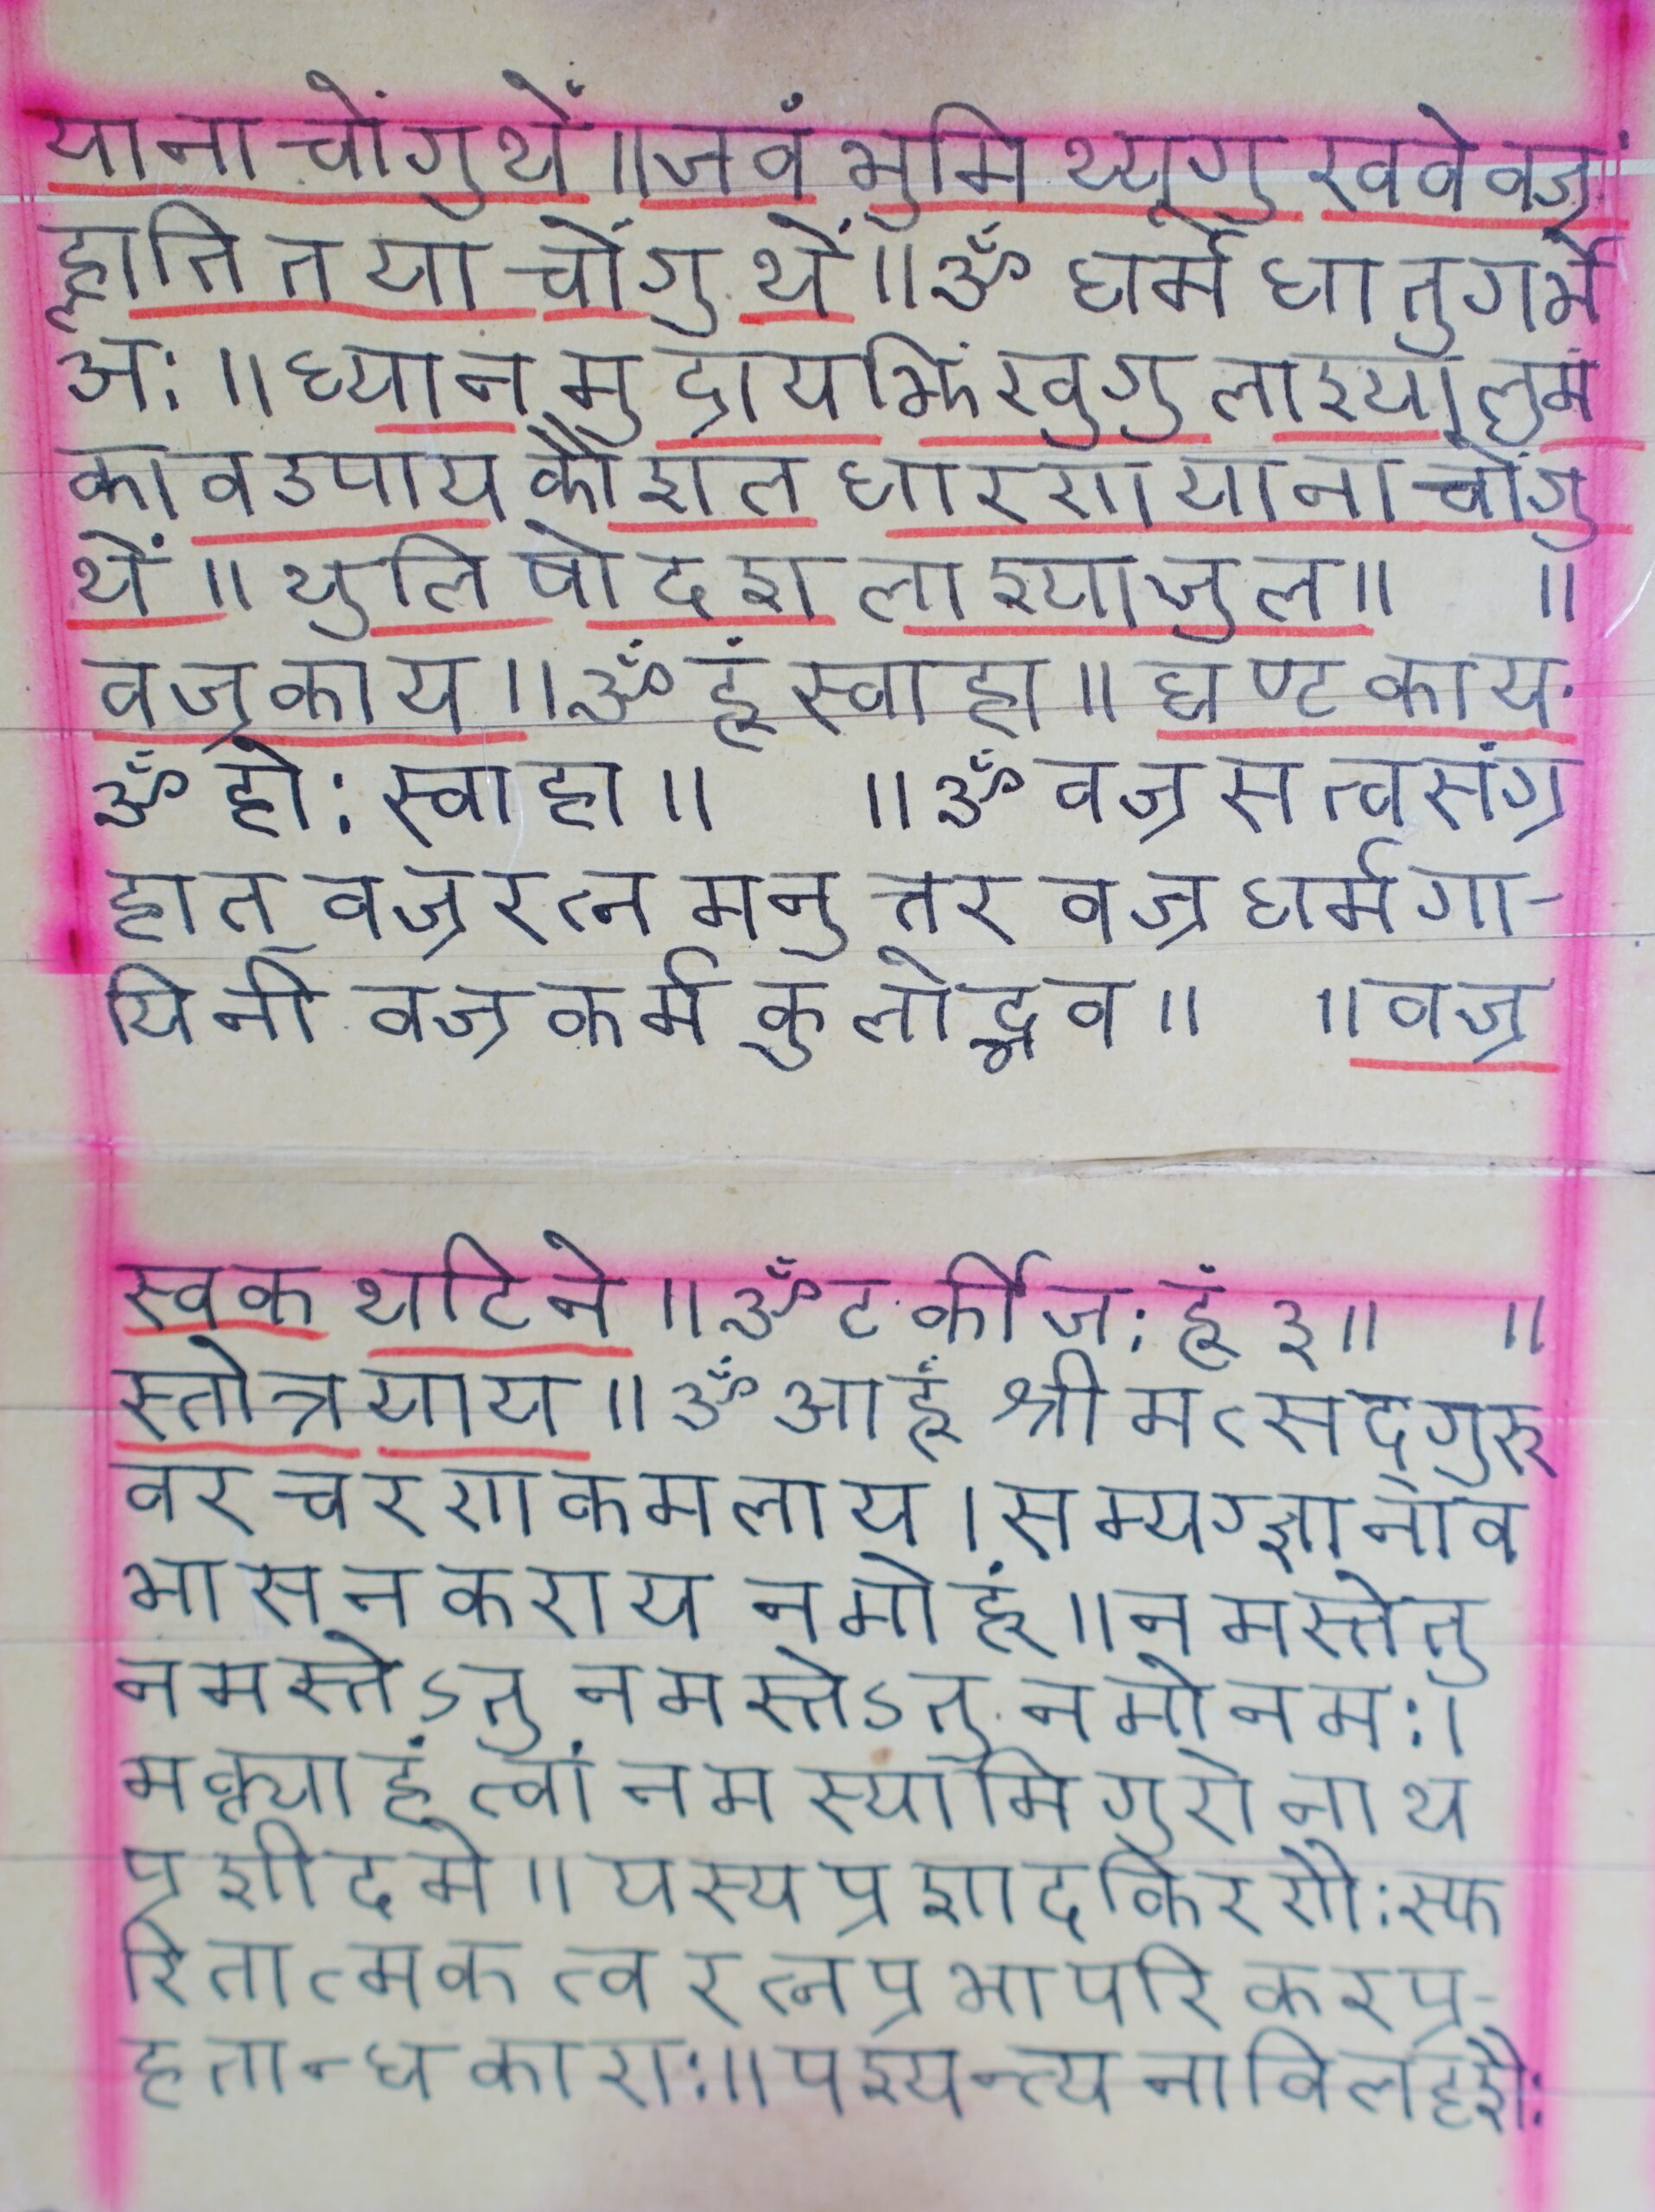 याना चोंगु थें ॥ जवं भुमि थ्यूगु खवे वज्रं
ह्नाति तया चोंगु थें ॥ ॐ धर्मे धातु गर्भे
अः ॥ ध्यान मुद्राय झिंखुगु लाश्या लुमं
का व उपाय कौशल धारणा याना चोंगु
थें ॥ थुलि षोदश लाश्या जुल ॥ ॥
वज्रकाय ॥ ॐ हूं स्वाहा ॥ घण्टकाय
ॐ होः स्वाहा ॥ ॥ ॐ वज्र सत्व संग्र
हात् वज्र रत्न मनुत्तर वज्र धर्म गा-
यिनी वज्र कर्म कुलोद्भव ॥ ॥ वज्र
स्वक थटिने ॥ ॐ ट र्की जः हूं ३ ॥ ॥
स्तोत्र याय ॥ ॐ आ हूं श्री मत्सद्गुरु
वर चरण कमलाय । सम्यग्ज्ञानाव
भासन कराय नमो हूं ॥ नमस्तेतु
नमस्तेऽतु नमस्तेऽतु नमो नमः ।
भक्त्याहं त्वां नमस्यामि गुरो नाथ
प्रशीद मे ॥ यस्य प्रशाद किरणैः स्फ
रितात्मक त्व रत्न प्रभा परिकर प्र-
हतान्धकाराः ॥ पश्यन्त्य नाविल दृशैः